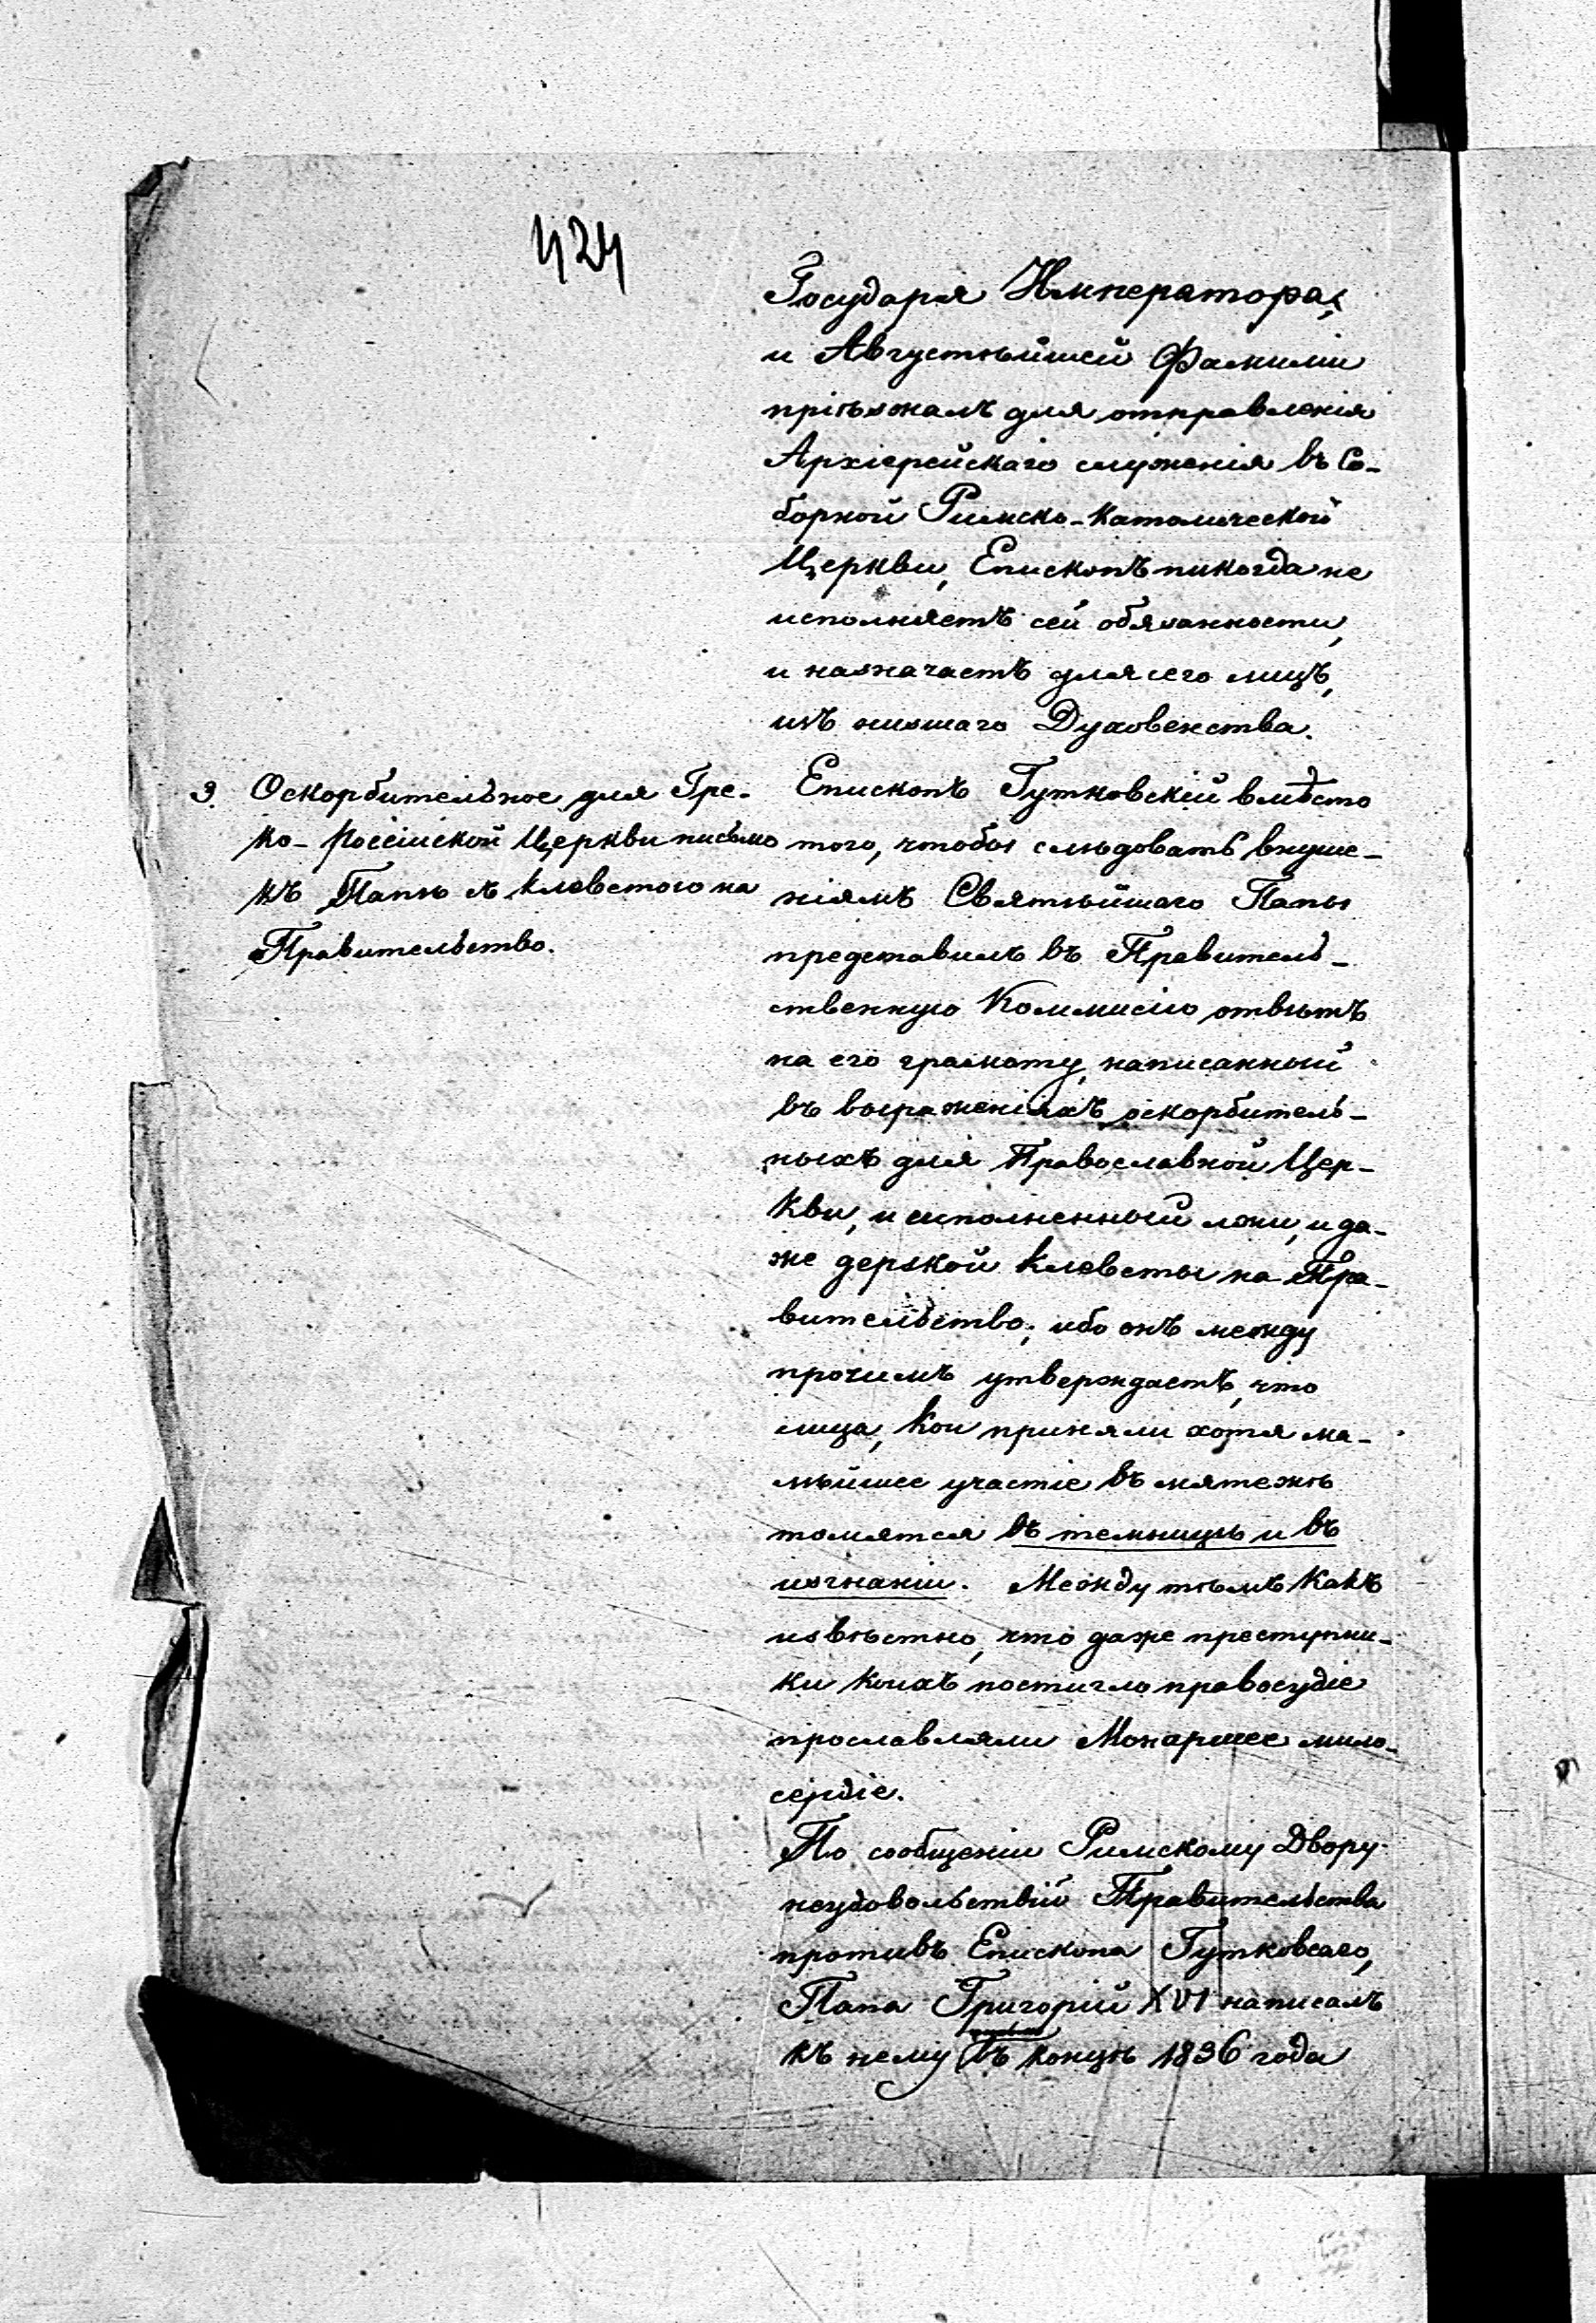 424
Государя Императора,
и Августѣйшей Фамиліи
пріѣзжалъ для отправленія
Архіерейскаго служенія въ Со-
борной Римско-Католической
Церкви, Епископъ никогда не
исполняетъ сей обязанности,
и назначаетъ для сего лицъ,
изъ низшаго Духовенства.
3. Оскорбительное для Гре-
ко-Россійской Церкви письмо
къ Папѣ съ клеветою на
Правительство.
Епископъ Гутковскій вмѣсто
того, чтобы слѣдовать внуше-
ніямъ Святѣйшаго Папы
представилъ въ Правитель-
ственную Коммисію отвѣтъ
на его грамату, написанный
въ выраженіяхъ оскорбитель-
ныхъ для Православной Цер-
кви, и исполненный лжи, и да-
же дерзкой клеветы на Пра-
вительство; ибо онъ между
прочимъ утверждаетъ, что
лица, кои приняли хотя ма-
лѣйшее участіе въ мятежѣ
томятся въ темницѣ и въ
изгнаніи. Между тѣмъ какъ
извѣстно, что даже преступни-
ки коихъ постигло правосудіе
прославляли Монаршее мило-
сердіе.
По сообщеніи Римскому Двору
неудовольствій Правительства
противъ Епископа Гутковсаго,
Папа Григорій XVI написалъ
къ нему въ концѣ 1836 года